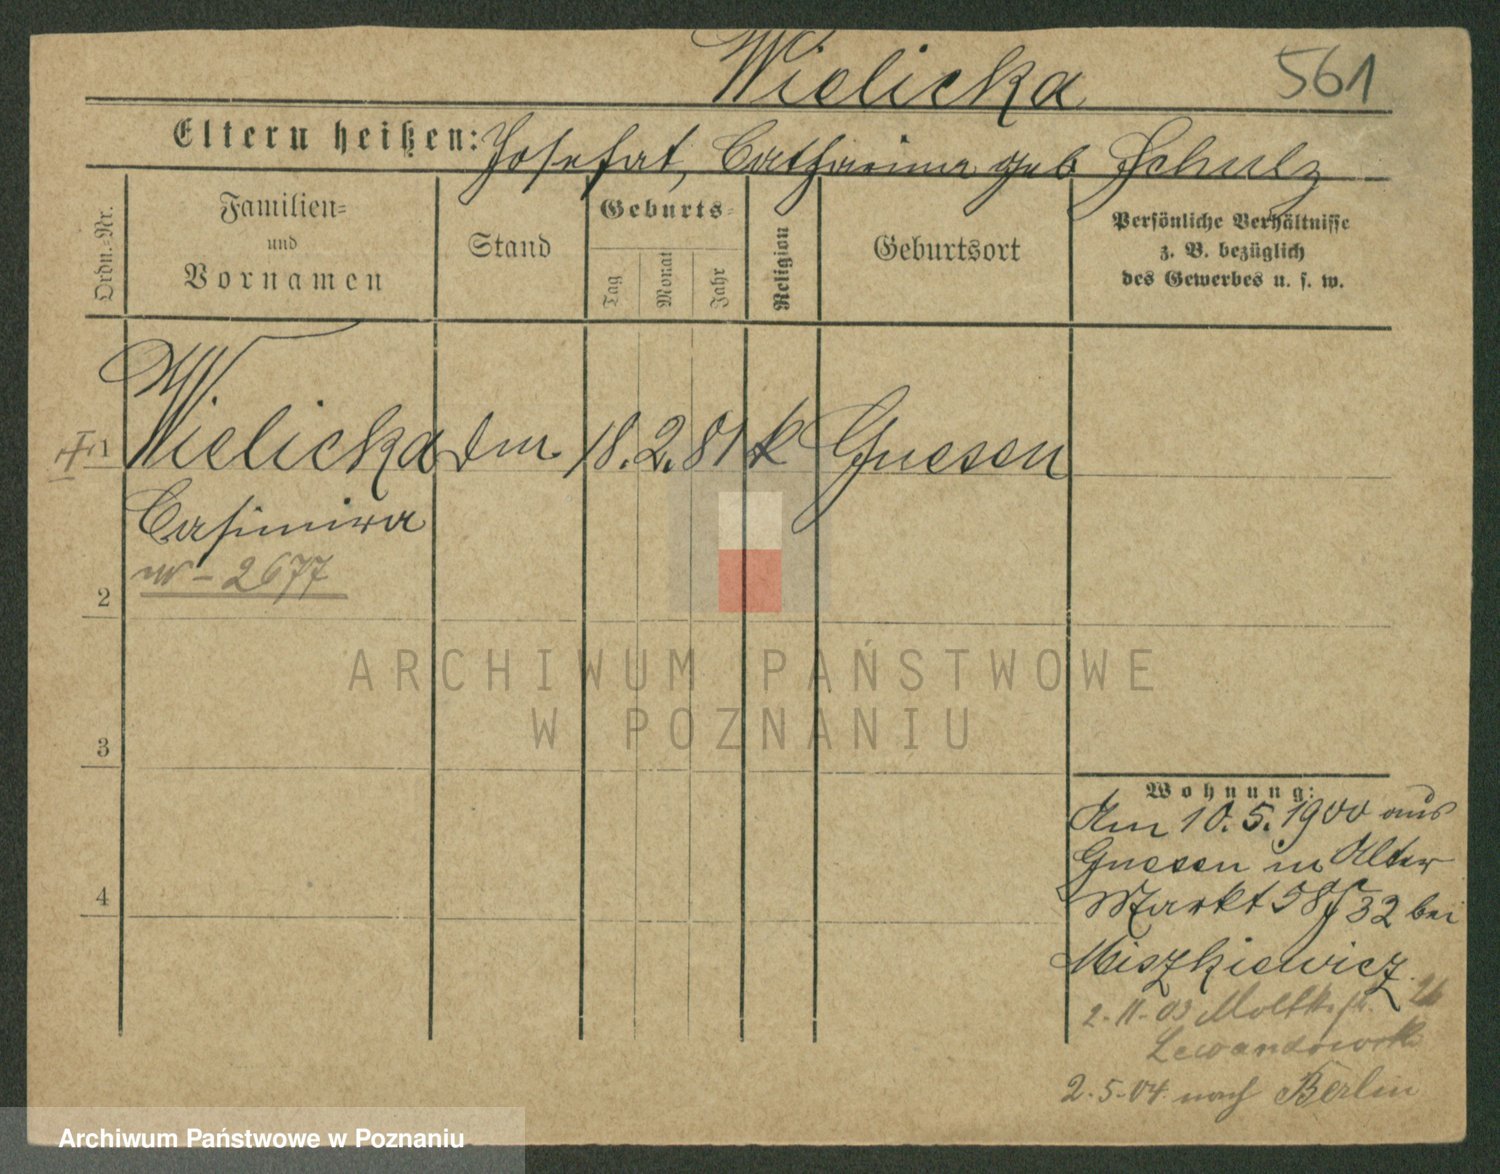 Wielicka 561
Eltern heißen: Josefat, Catharina geb Schulz
Ordn.=Nr.
Familien=
und
Vornamen
Stand
Geburts=
Tag
Monat
Jahr
Religion
Geburtsort
Persönliche Verhältnisse
z. B. bezüglich
des Gewerbes u. s. w.
1 Wielicka 18. 2. 81 k Gnesen
Casimira
2677
2
3
4
ARCHIWUM PAŃSTWOWE
W POZNANIU
Wohnung:
Am 10. 5. 1900 aus
Gnesen in Alter
Markt 58/ 32 bei
Miszkiewicz
2-11-03 Moltkestr.
Lewandowski
2-5-04 nach Berlin
Archiwum Państwowe w Poznaniu